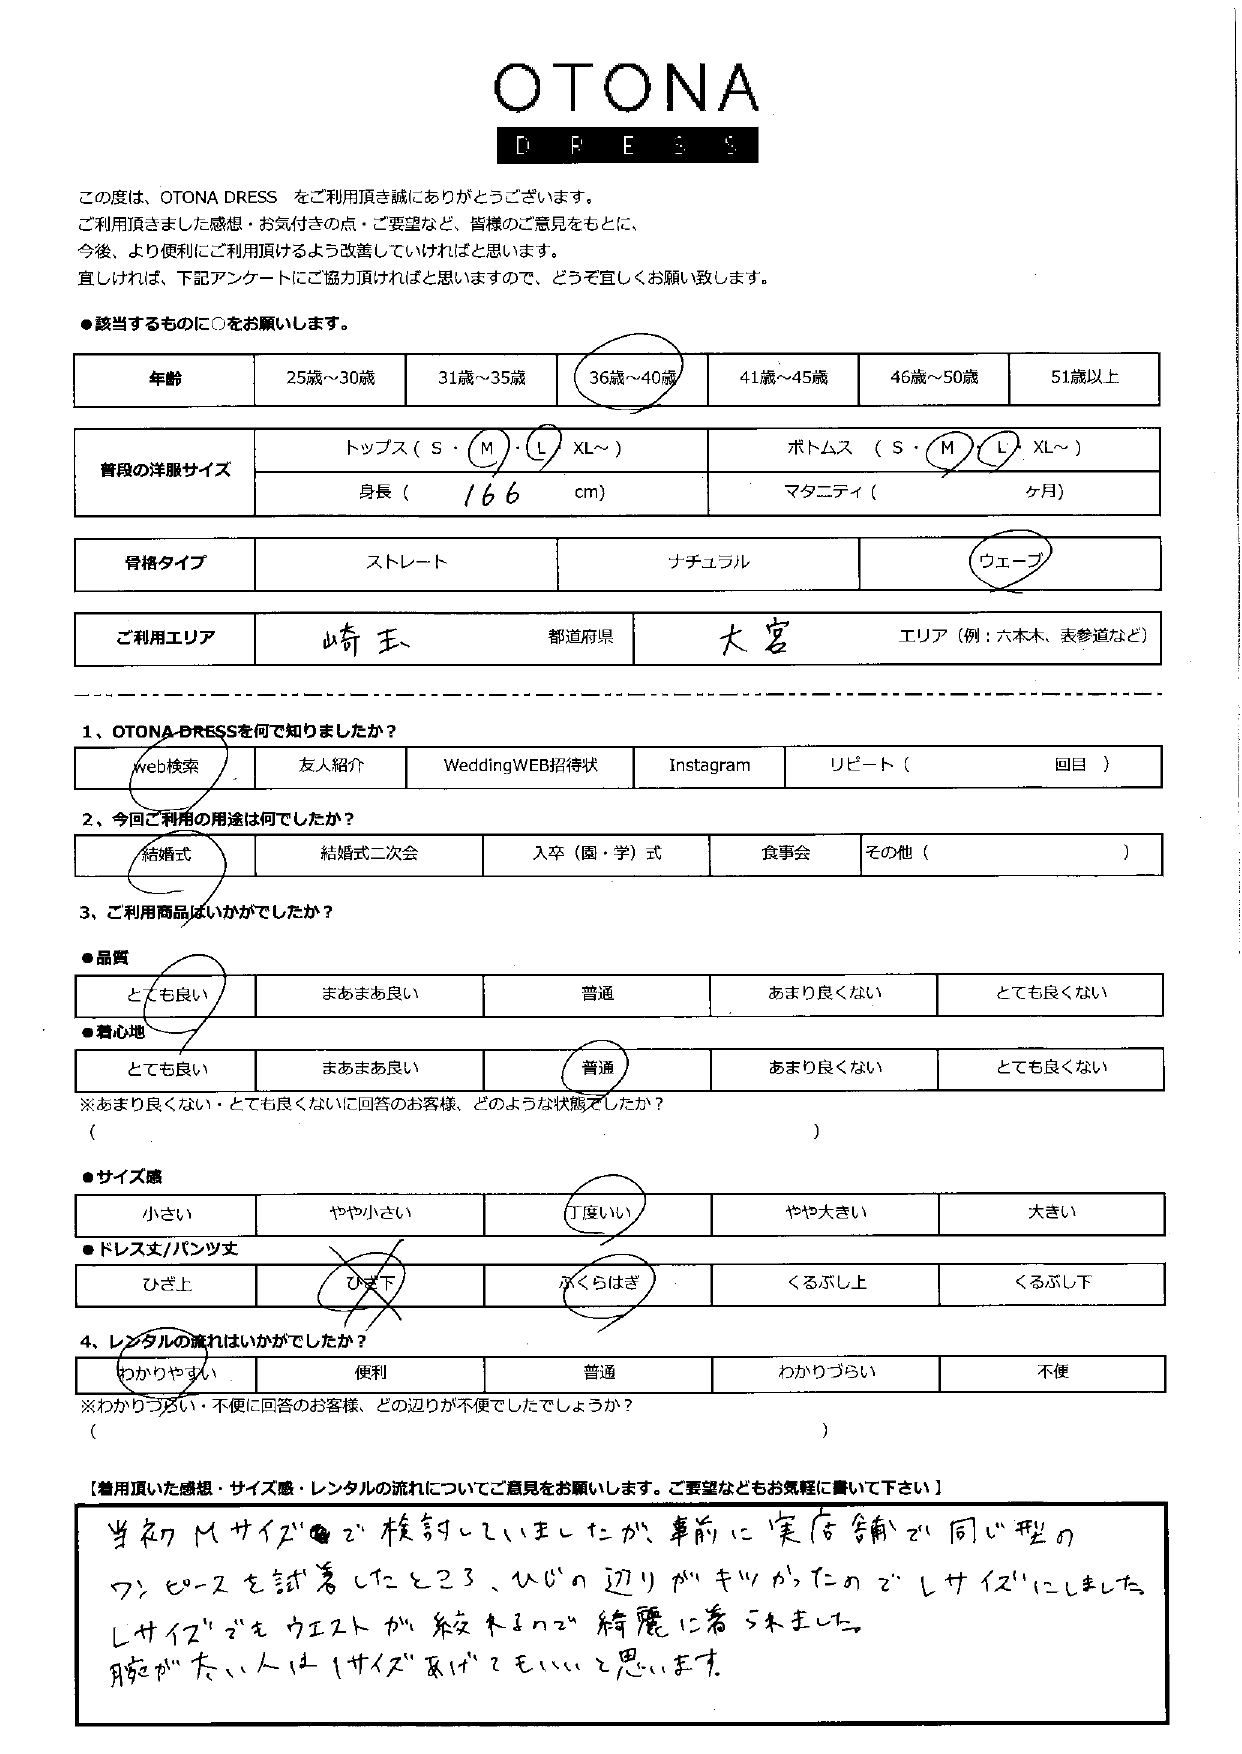 OTONA
DRESS
この度は、OTONA DRESS　をご利用頂き誠にありがとうございます。
ご利用頂きました感想・お気付きの点・ご要望など、皆様のご意見をもとに、
今後、より便利にご利用頂けるよう改善していければと思います。
宜しければ、下記アンケートにご協力頂ければと思いますので、どうぞ宜しくお願い致します。
●該当するものに○をお願いします。
年齢 25歳～30歳 31歳～35歳 36歳～40歳 41歳～45歳 46歳～50歳 51歳以上
普段の洋服サイズ トップス ( S ・ M ・ L ・ XL～ ) ボトムス ( S ・ M ・ L ・ XL～ )
身長 ( 166 cm) マタニティ ( ヶ月)
骨格タイプ ストレート ナチュラル ウェーブ
ご利用エリア 埼玉 都道府県 大宮 エリア（例：六本木、表参道など）
1、OTONA DRESSを何で知りましたか？
web検索 友人紹介 WeddingWEB招待状 Instagram リピート（ 回目 ）
2、今回ご利用の用途は何でしたか？
結婚式 結婚式二次会 入卒（園・学）式 食事会 その他（ ）
3、ご利用商品はいかがでしたか？
●品質
とても良い まあまあ良い 普通 あまり良くない とても良くない
●着心地
とても良い まあまあ良い 普通 あまり良くない とても良くない
※あまり良くない・とても良くないに回答のお客様、どのような状態でしたか？
( )
●サイズ感
小さい やや小さい 丁度いい やや大きい 大きい
●ドレス丈/パンツ丈
ひざ上 ひざ下 ふくらはぎ くるぶし上 くるぶし下
4、レンタルの流れはいかがでしたか？
わかりやすい 便利 普通 わかりづらい 不便
※わかりづらい・不便に回答のお客様、どの辺りが不便でしたでしょうか？
( )
【着用頂いた感想・サイズ感・レンタルの流れについてご意見をお願いします。ご要望などもお気軽に書いて下さい】
当初Mサイズで検討していましたが、事前に実店舗で同じ型の
ワンピースを試着したところ、ひじの辺りがキツかったのでLサイズにしました。
Lサイズでもウエストが絞れるので綺麗に着られました。
腕が太い人は1サイズあげてもいいと思います。